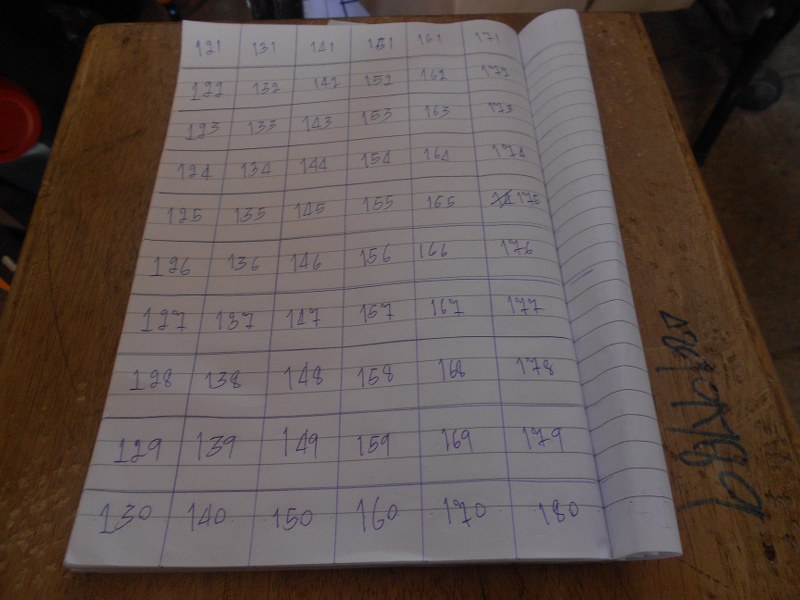 121 131 141 151 161 171
122 132 142 152 162 172
123 133 143 153 163 173
124 134 144 154 164 174
125 135 145 155 165 175
126 136 146 156 166 176
127 137 147 157 167 177
128 138 148 158 168 178
129 139 149 159 169 179
130 140 150 160 170 180